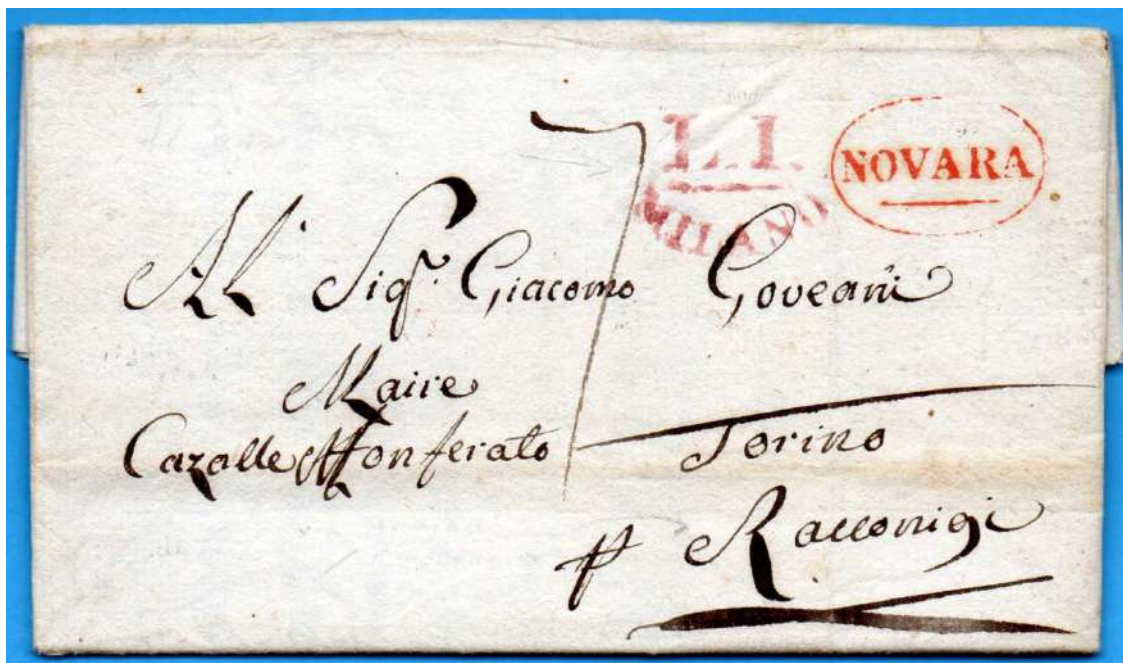 L.I.
MILANO
NOVARA
7
Al Sigr. Giacomo Goveani
Maire
Cazalle Monferato Torino
p Racconigi